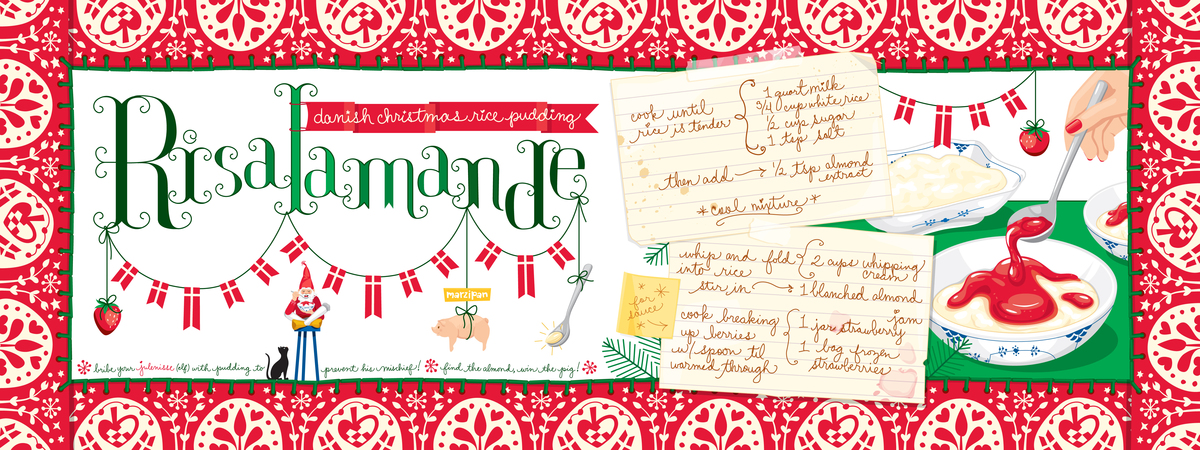 Risalamande
danish christmas rice pudding
marzipan
bribe your julenisse (elf) with pudding to prevent his mischief! find the almond, win the pig!
cook until
rice is tender
1 quart milk
3/4 cup white rice
1/2 cup sugar
1 tsp salt
then add → 1/2 tsp almond
extract
*cool mixture*
whip and fold
into rice
2 cups whipping
cream
stir in → 1 blanched almond
for
sauce
cook breaking
up berries
w/ spoon til
warmed through
1 jar strawberry
jam
1 bag frozen
strawberries